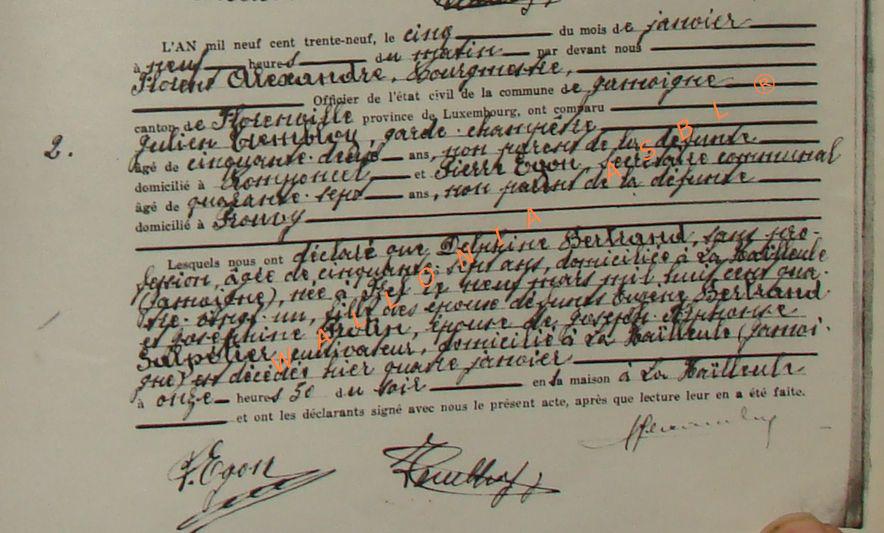 L'AN mil neuf cent trente-neuf, le cinq du mois de janvier
à neuf heures du matin par devant nous
Florent Alexandre, Bourgmestre,
Officier de l'état civil de la commune de Jamoigne
canton de Florenville province de Luxembourg, ont comparu
Julien garde-champêtre
âgé de cinquante-deux ans, non parent de la défunte
domicilié à Romponcel et Pierre Egon, secrétaire communal
âgé de quarante-sept ans, non parent de la défunte
domicilié à Prouvy
2.
Lesquels nous ont déclaré que Delphine Bertrand, sans pro-
fession, âgée de cinquante-sept ans, domiciliée à La Haïlleule
(Jamoigne), née à le neuf mars mil huit cent qua-
tre-vingt-un, fille des époux défunts Eugène Bertrand
et Joséphine épouse de Joseph Alphonse
cultivateur, domicilié à La Haïlleule (Jamoi-
gne) est décédée hier quatre janvier
à onze heures 50 du soir en sa maison à La Haïlleule
et ont les déclarants signé avec nous le présent acte, après que lecture leur en a été faite.
P. Egon
WALLONIA ASBL ®